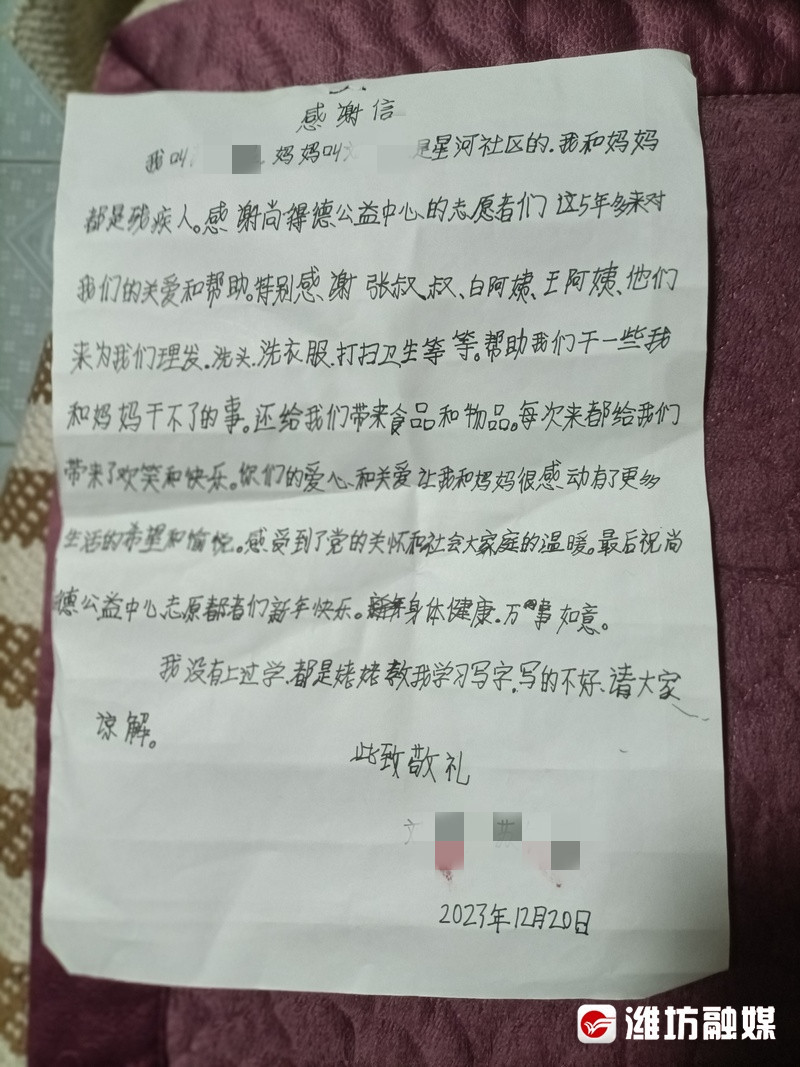 感谢信
我叫 妈妈叫 是星河社区的.我和妈妈
都是残疾人。感谢尚得德公益中心的志愿者们 这5年多来对
我们的关爱和帮助。特别感谢 张叔叔、白阿姨、王阿姨、他们
来为我们理发、洗头、洗衣服、打扫卫生等等。帮助我们干一些我
和妈妈干不了的事。还给我们带来食品和物品。每次来都给我们
带来了欢笑和快乐。你们的爱心和关爱让我和妈妈很感动有了更多
生活的希望和愉悦。感受到了党的关怀和社会大家庭的温暖。最后祝尚
德公益中心志愿都者们新年快乐。身体健康.万事如意。
我没有上过学.都是姥姥教我学习写字.写的不好、请大家
谅解。
此致敬礼
2023年12月20日
潍坊融媒